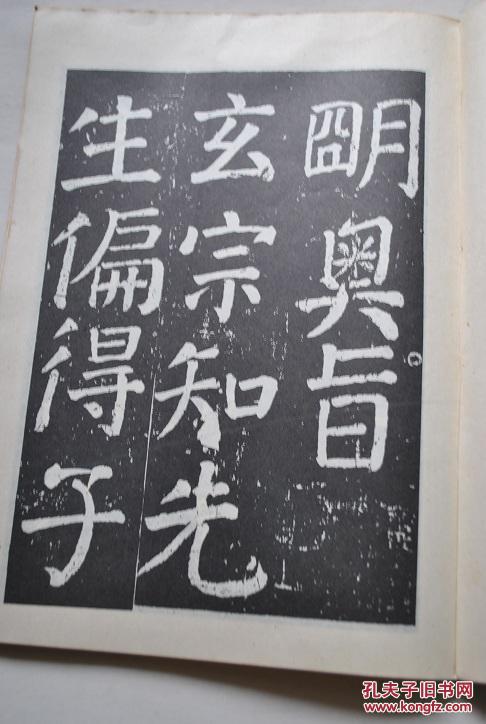 朙奥旨
玄宗知光
生偏得子
孔夫子旧书网
www.kongfz.com